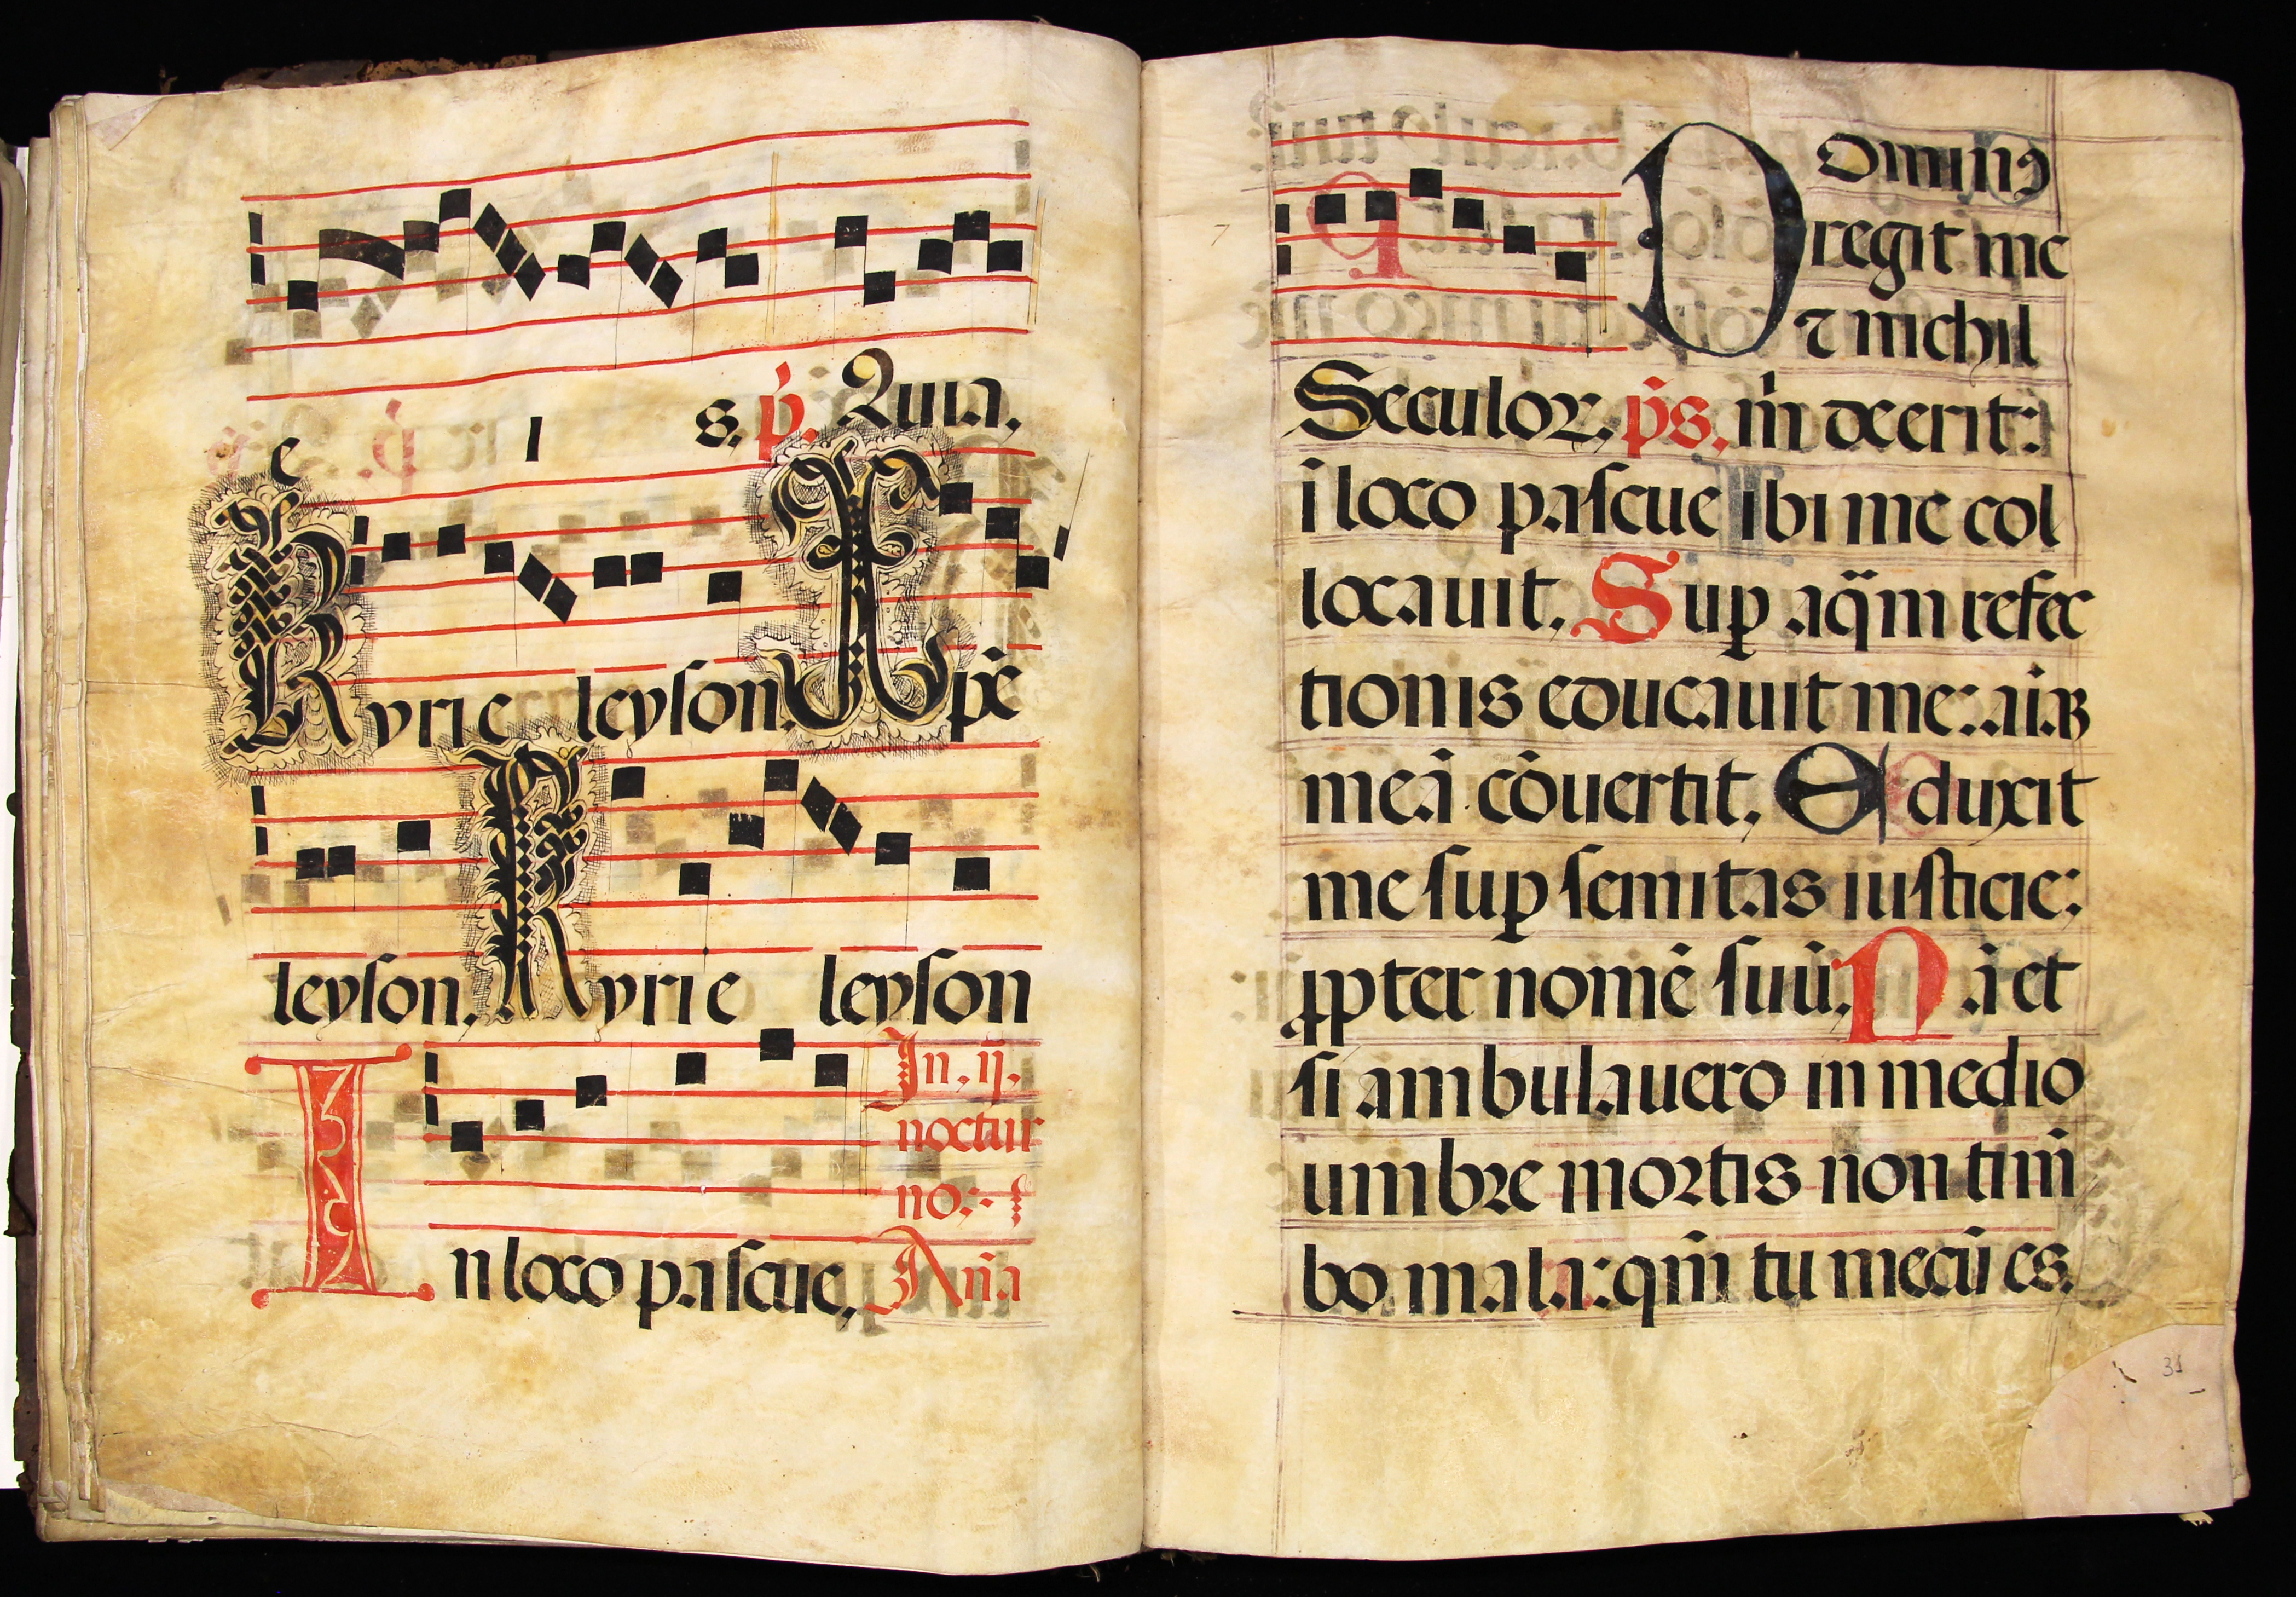 e l s. p̄. Quia.
Kyrie leyson. Xp̄e
leyson. Kyrie leyson
In. ij.
noctur
no:
In loco pascue, An̄a
Dominꝰ
regit me
⁊ nichil
Seculoꝝ, p̄s. m̄ deerit:
ī loco pascue ibi me col
locauit. Suꝑ aq̄m refec
tionis educauit me: aīaꝫ
meā cōuertit, De duxit
me suꝑ semitas iusticie:
ꝓpter nomē suū. Nā et
si ambulauero in medio
umbre mortis non tim̄
bo mala: qm̄ tu mecū es.
31